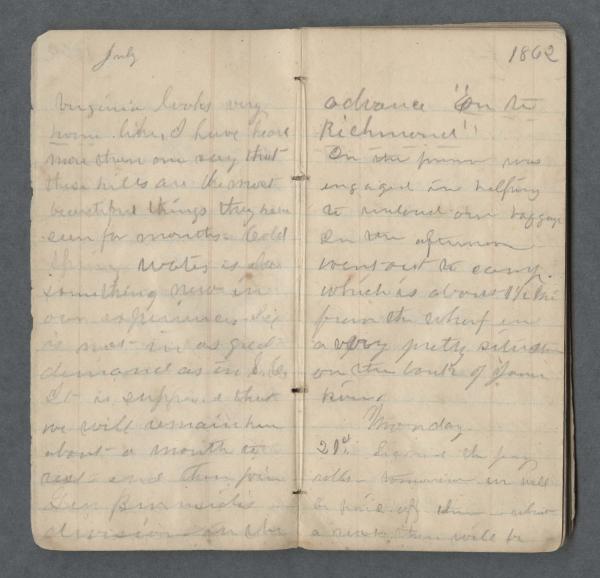 July
Virginia looks very
home like, I have heard
more than one say that
these hills are the most
beautiful things they have
seen for months. Cold
Spring water is also
something new in
our experience. Ice
is not in as great
demand as in S.C.
It is supposed that
we will remain here
about a month to
rest and then join
Gen Burnside's
division in the
1862
advance "On to
Richmond"!
In the forenoon was
engaged in helping
to unload our baggage
In the afternoon
went out to camp.
which is about 1½ mi
from the wharf in
a very pretty situation
on the bank of James
River.
Monday.
21st. Signed the pay
rolls. tomorrow we will
be paid off
a week there will be